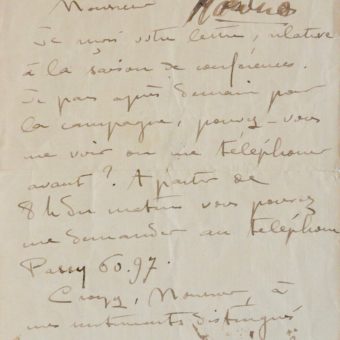 Monsieur
Je reçois votre lettre, relative
à la saison de conférences.
Je pars après demain pour
la campagne, pouvez-vous
me voir ou me téléphoner
avant? A partir de
8 h du matin vous pouvez
me demander au téléphone
Passy 60.97.
Croyez, Monsieur, à
mes sentiments distingués